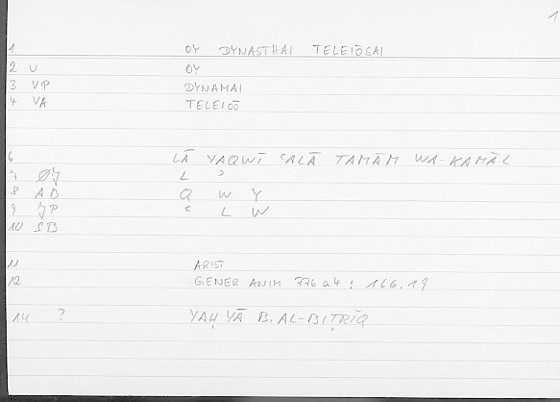 1
1 OY DYNASTHAI TELEIŌSAI
2 U OY
3 VP DYNAMAI
4 VA TELEIOŌ
6 LĀ YAQWĪ ʿALĀ TAMĀM WA-KAMĀL
7 L ʾ
8 AB Q W Y
9 ʿ L W
10 SB
11 ARIST
12 GENER ANIM 776a4 : 166.19
14 ? YAḤYĀ B. AL-BIṬRĪQ